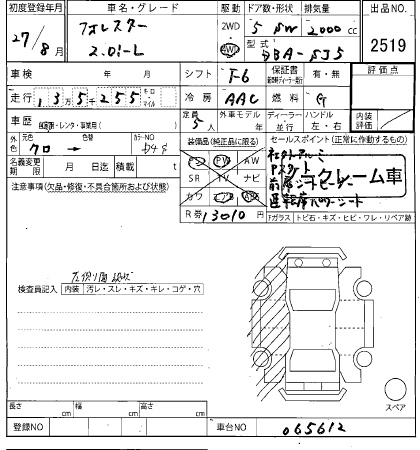 初度登録年月 車名・グレード 駆動 ドア数・形状 排気量 出品NO.
27/8月 フォレスター 2.0i-L 2WD 4WD 5 SW 2000cc 2519
型式 DBA-SJ5
車検 年 月 シフト F-6 保証書 有・無 評価点
走行 135255 キロ・マイル 冷房 AAC 燃料 G
車歴 自家用・レンタ・事業用( ) 定員 5人 外車モデル 年 ディーラー 並行 ハンドル 左・右 内装評価
外色 クロ → 色替 カラーNO D4S 装備品(純正品に限る) セールスポイント(正常に作動するもの)
PS PW AW
名義変更期限 月 日迄 積載 t SR TV ナビ
注意事項(欠品・修復・不具合箇所および状態) カワ
R券 13010円
社外アルミ
Pスタート
前席シートヒーター
運転席パワーシート
クレーム車
Fガラス トビ石・キズ・ヒビ・ワレ・リペア跡
検査員記入 内装 汚レ・スレ・キズ・キレ・コゲ・穴
長さ cm 幅 cm 高さ cm スペア
登録NO 車台NO 065612